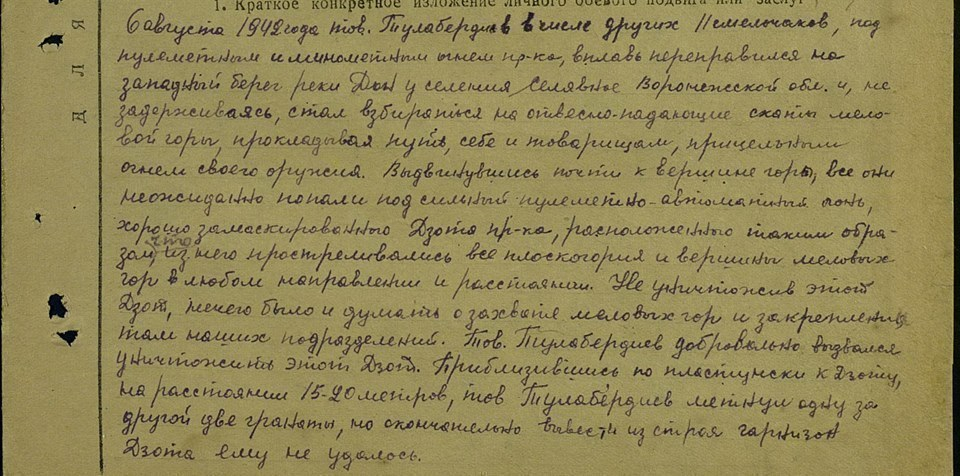 1. Краткое конкретное изложение личного боевого подвига или заслуг
Д Л Я
6 августа 1942 года тов. Тулабердиев в числе других 11 смельчаков, под
пулеметным и минометным огнем пр-ка, вплавь переправился на
западный берег реки Дон у селения Селявное Воронежской обл. и, не
задерживаясь, стал взбираться на отвесно-падающие скаты мело-
вой горы, прокладывая путь, себе и товарищам, прицельным
огнем своего оружия. Выдвинувшись почти к вершине горы, все они
неожиданно попали под сильный пулеметно-автоматный огонь,
хорошо замаскированного Дзота пр-ка, расположенного таким обра-
зом, что из него простреливались все плоскогория и вершины меловых
гор в любом направлении и расстоянии. Не уничтожив этот
Дзот, нечего было и думать о захвате меловых гор и закреплению
там наших подразделений. Тов. Тулабердиев добровольно вызвался
уничтожить этот Дзот. Приблизившись по пластунски к Дзоту,
на расстоянии 15-20 метров, тов Тулабердиев метнул одну за
другой две гранаты, но окончательно вывести из строя гарнизон
Дзота ему не удалось.